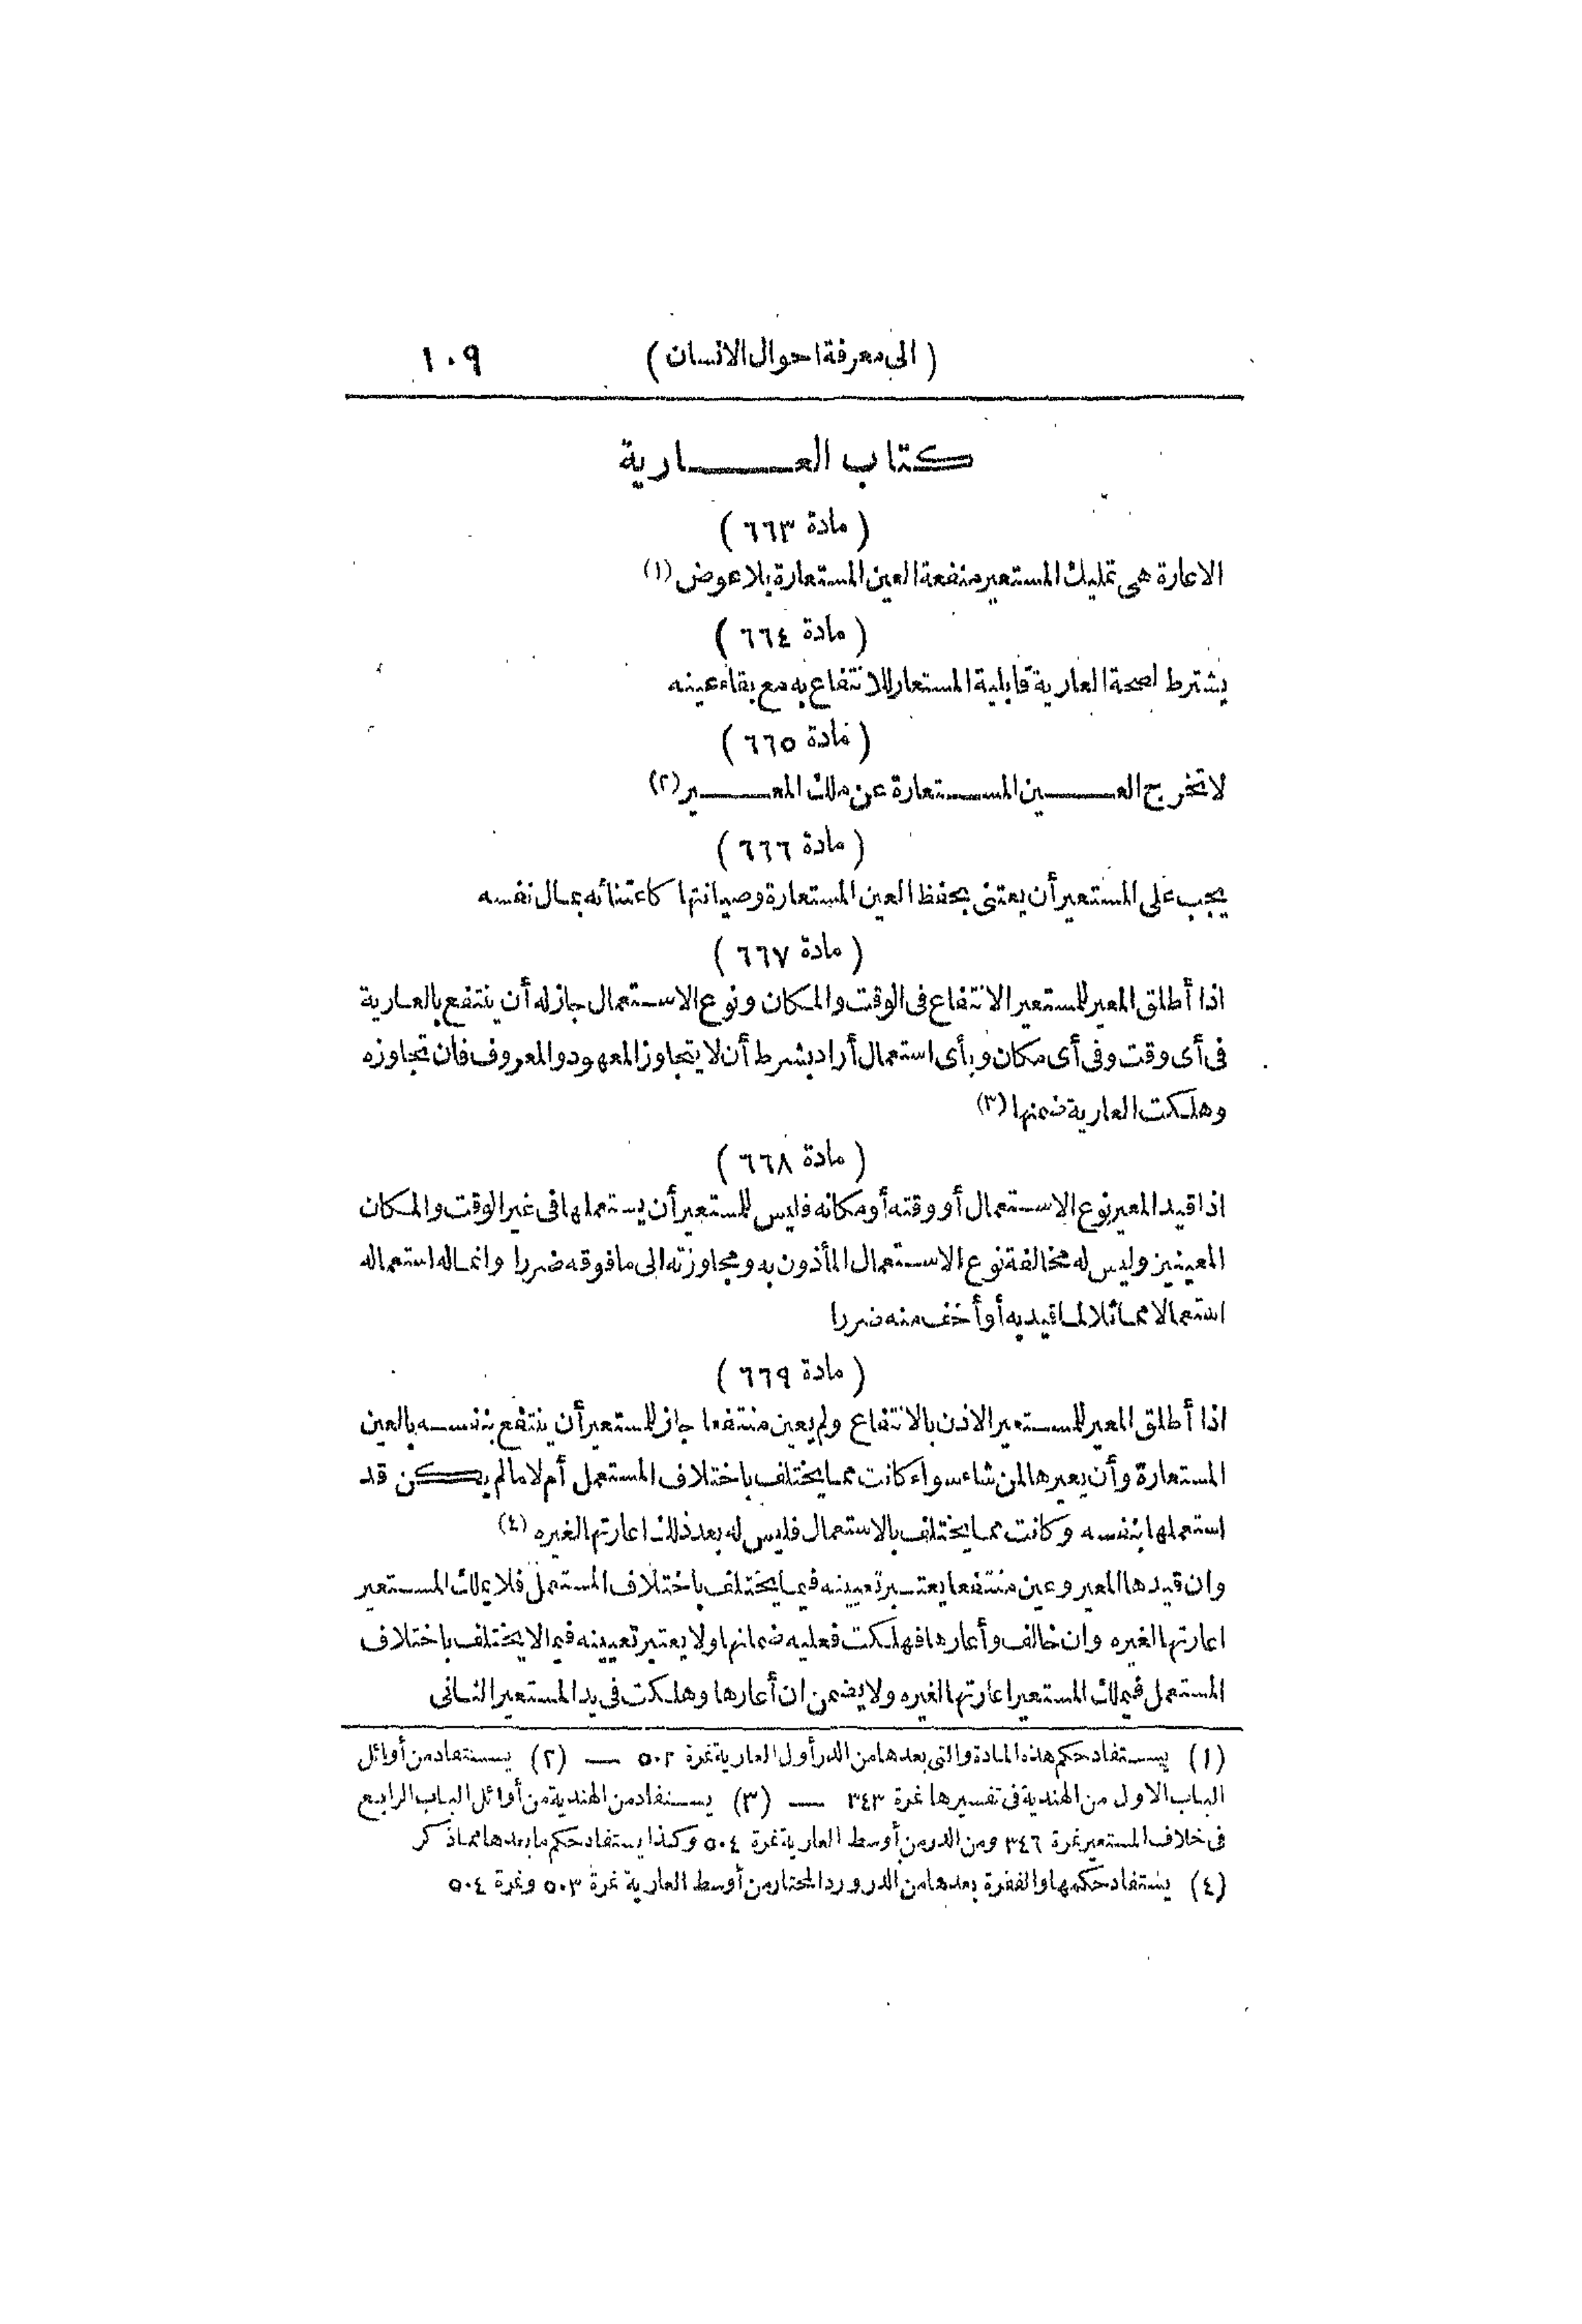 (الى معرفة احوال الانسان) ١٠٩
كتاب العارية
(مادة ٦٦٣)
الاعارة هى تمليك المستعير منفعة العين المستعارة بلا عوض (١)
(مادة ٦٦٤)
يشترط لصحة العارية قابلية المستعار للانتفاع به مع بقاء عينه
(مادة ٦٦٥)
لا تخرج العين المستعارة عن ملك المعير (٢)
(مادة ٦٦٦)
يجب على المستعير أن يعتنى بحفظ العين المستعارة وصيانتها كاعتنائه بمال نفسه
(مادة ٦٦٧)
اذا أطلق المعير للمستعير الانتفاع فى الوقت والمكان ونوع الاستعمال جاز له أن ينتفع بالعارية
فى أى وقت وفى أى مكان وبأى استعمال أراد بشرط أن لا يتجاوز المعهود والمعروف فان تجاوزه
وهلكت العارية ضمنها (٣)
(مادة ٦٦٨)
اذا قيد المعير نوع الاستعمال أو وقته أو مكانه فليس للمستعير أن يستعملها فى غير الوقت والمكان
المعينين وليس له مخالفة نوع الاستعمال المأذون به ومجاوزته الى ما فوقه ضررا وانما له استعماله
استعمالا مماثلا لما قيد به أو أخف منه ضررا
(مادة ٦٦٩)
اذا أطلق المعير للمستعير الاذن بالانتفاع ولم يعين منتفعا جاز للمستعير أن ينتفع بنفسه بالعين
المستعارة وأن يعيرها لمن شاء سواء كانت مما يختلف باختلاف المستعمل أم لا ما لم يكن قد
استعملها بنفسه وكانت مما يختلف بالاستعمال فليس له بعد ذلك اعارتها لغيره (٤)
وان قيدها المعير وعين منتفعا يعتبر تعيينه فيما يختلف باختلاف المستعمل فلا يملك المستعير
اعارتها لغيره وان خالف وأعارها فهلكت فعليه ضمانها ولا يعتبر تعيينه فيما لا يختلف باختلاف
المستعمل فيملك المستعير اعارتها لغيره ولا يضمن ان أعارها وهلكت فى يد المستعير الثانى
(١) يستفاد حكم هذه المادة والتى بعدها من الدر أول العارية نمرة ٥٠٢ — (٢) يستفاد من أوائل
الباب الاول من الهندية فى تفسيرها نمرة ٣٤٣ — (٣) يستفاد من الهندية من أوائل الباب الرابع
فى خلاف المستعير نمرة ٣٤٦ ومن الدر من أوسط العارية نمرة ٥٠٤ وكذا يستفاد حكم ما بعدها مما ذكر
(٤) يستفاد حكمها والفقرة بعدها من الدر ورد المحتار من أوسط العارية نمرة ٥٠٣ ونمرة ٥٠٤